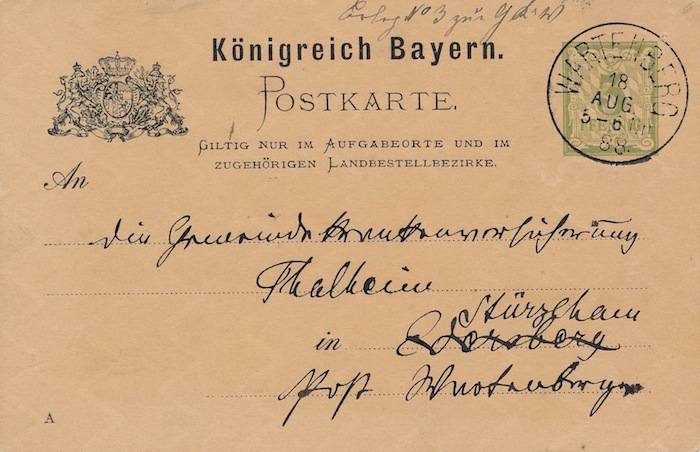 No 3 zur
Königreich Bayern.
POSTKARTE.
GILTIG NUR IM AUFGABEORTE UND IM
ZUGEHÖRIGEN LANDBESTELLBEZIRKE.
WARTENBERG
18
AUG.
5-6
88.
An
die Gemeindekrankenversicherung
Thalheim
Stürzlham
in
Post Wartenberg
A